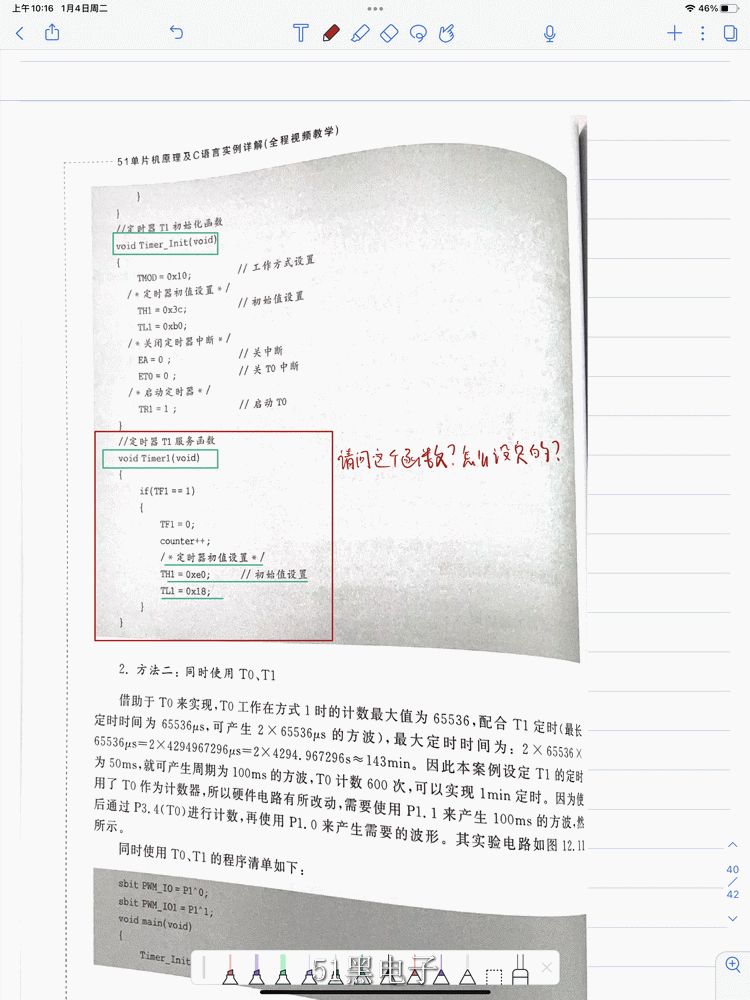 上午10:16 1月4日周二
46%
51单片机原理及C语言实例详解(全程视频教学)
}
}
//定时器 T1 初始化函数
void Timer_Init(void)
{
TMOD=0x10; // 工作方式设置
/*定时器初值设置*/
TH1=0x3c; // 初始值设置
TL1=0xb0;
/*关闭定时器中断*/
EA=0 ; // 关中断
ET0=0 ; // 关 T0 中断
/*启动定时器*/
TR1=1 ; // 启动 T0
}
//定时器 T1 服务函数
void Timer1(void)
{
if(TF1==1)
{
TF1=0;
counter++;
/*定时器初值设置*/
TH1=0xe0; // 初始值设置
TL1=0x18;
}
}
请问这个函数?怎么设定的?
2. 方法二:同时使用 T0、T1
借助于 T0 来实现,T0 工作在方式 1 时的计数最大值为 65536,配合 T1 定时(最长
定时时间为 65536μs,可产生 2×65536μs 的方波),最大定时时间为: 2×65536×
65536μs=2×4294967296μs=2×4294.967296s≈143min。因此本案例设定 T1 的定时
为 50ms,就可产生周期为 100ms 的方波,T0 计数 600 次,可以实现 1min 定时。因为使
用了 T0 作为计数器,所以硬件电路有所改动,需要使用 P1.1 来产生 100ms 的方波,然
后通过 P3.4(T0)进行计数,再使用 P1.0 来产生需要的波形。其实验电路如图 12.11
所示。
同时使用 T0、T1 的程序清单如下:
sbit PWM_IO=P1^0;
sbit PWM_IO1=P1^1;
void main(void)
{
Timer_Init
40
/
42
51黑电子